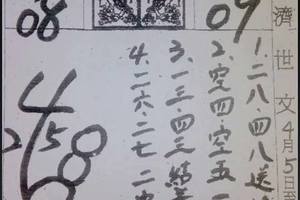 08
09
濟世文
4月5日至
1.二八.四八送
2.空四.空五一
3.一三.四三結
4.二六.二七二
4
2 5 8
6